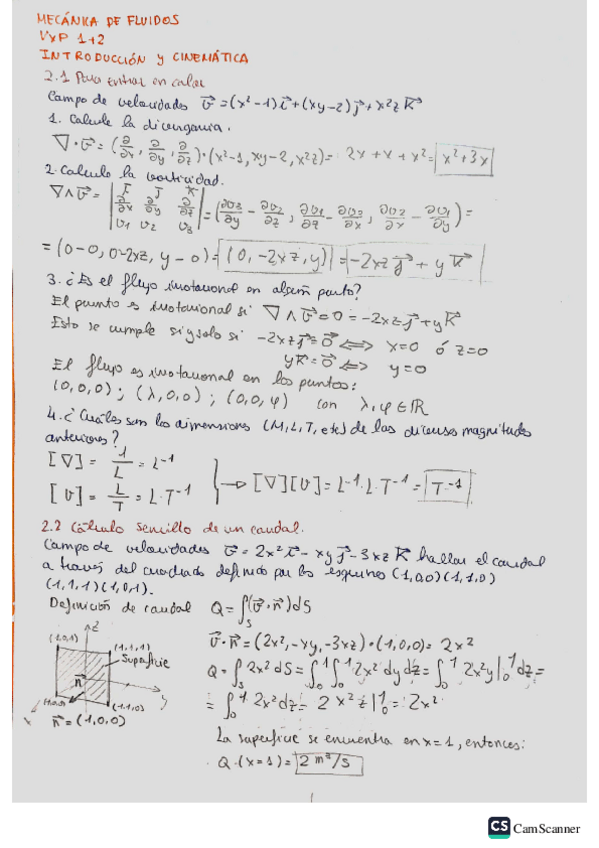 MECÁNICA DE FLUIDOS
VxP 1+2
INTRODUCCIÓN y CINEMÁTICA
2.1 Para entrar en calor
Campo de velocidades v⃗ = (x²-1)i⃗ + (xy-2)j⃗ + x²z k⃗
1. Calcule la divergencia.
∇·v⃗ = (∂/∂x, ∂/∂y, ∂/∂z)·(x²-1, xy-2, x²z) = 2x + x + x² = x²+3x
2. Calcule la vorticidad.
∇∧v⃗ = | i⃗ j⃗ k⃗ ; ∂/∂x ∂/∂y ∂/∂z ; v1 v2 v3 | = (∂v3/∂y - ∂v2/∂z, ∂v1/∂z - ∂v3/∂x, ∂v2/∂x - ∂v1/∂y) =
= (0-0, 0-2xz, y-0) = (0, -2xz, y) = -2xz j⃗ + y k⃗
3. ¿Es el flujo irrotacional en algún punto?
El punto es irrotacional si ∇∧v⃗ = 0 = -2xz j⃗ + y k⃗
Esto se cumple si y solo si -2xz j⃗ = 0⃗ ⟺ x=0 ó z=0
y k⃗ = 0⃗ ⟺ y=0
El flujo es irrotacional en los puntos:
(0,0,0) ; (λ,0,0) ; (0,0,φ) con λ,φ ∈ ℝ
4. ¿Cuáles son las dimensiones (M,L,T, etc) de las diversas magnitudes
anteriores?
[∇] = 1/L = L⁻¹
[v] = L/T = L·T⁻¹
→ [∇][v] = L⁻¹·L·T⁻¹ = T⁻¹
2.2 Cálculo sencillo de un caudal.
Campo de velocidades v⃗ = 2x² i⃗ - xy j⃗ - 3xz k⃗ hallar el caudal
a través del cuadrado definido por las esquinas (1,0,0) (1,1,0)
(1,1,1) (1,0,1).
Definición de caudal Q = ∫s (v⃗·n⃗) dS
v⃗·n⃗ = (2x², -xy, -3xz)·(1,0,0) = 2x²
Q = ∫s 2x² dS = ∫₀¹ ∫₀¹ 2x² dy dz = ∫₀¹ 2x²y |₀¹ dz =
= ∫₀¹ 2x² dz = 2x²z |₀¹ = 2x²
z
(1,0,1)
(1,1,1)
Superficie
n⃗
(1,0,0)
(1,1,0)
x
n⃗ = (1,0,0)
La superficie se encuentra en x=1, entonces:
Q·(x=1) = 2 m³/s
CS CamScanner